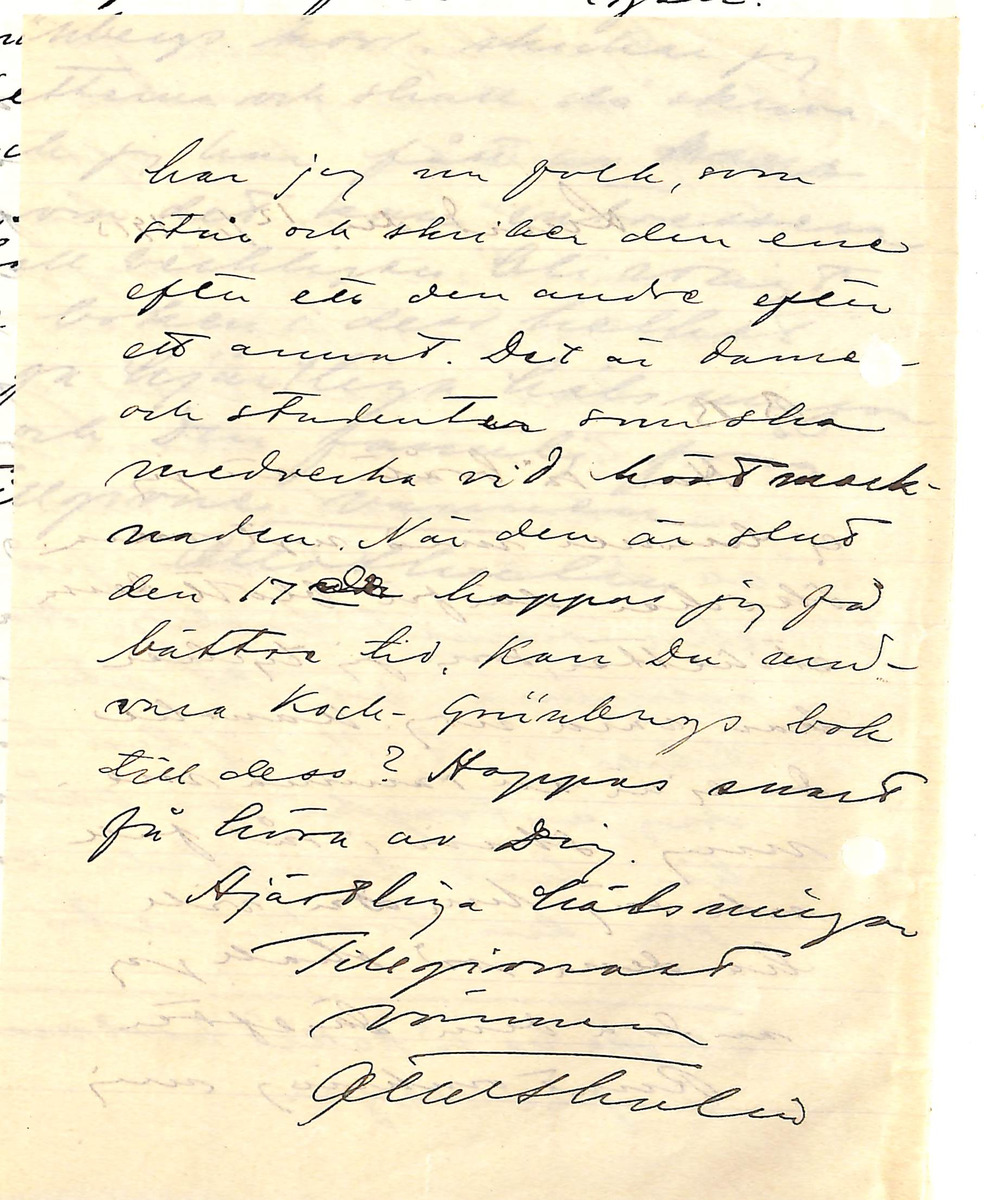 har jag nu folk, som
står och skriker den ene
efter ett den andre efter
ett annat. Det är damer
och studenter som ska
medverka vid höstmark-
naden. När den är slut
den 17 hoppas jag få
bättre tid. Kan Du und-
vara Koch-Grünbergs bok
till dess? Hoppas snart
få höra av Dig.
Hjärtliga hälsningar
Tillgivnast
vännen